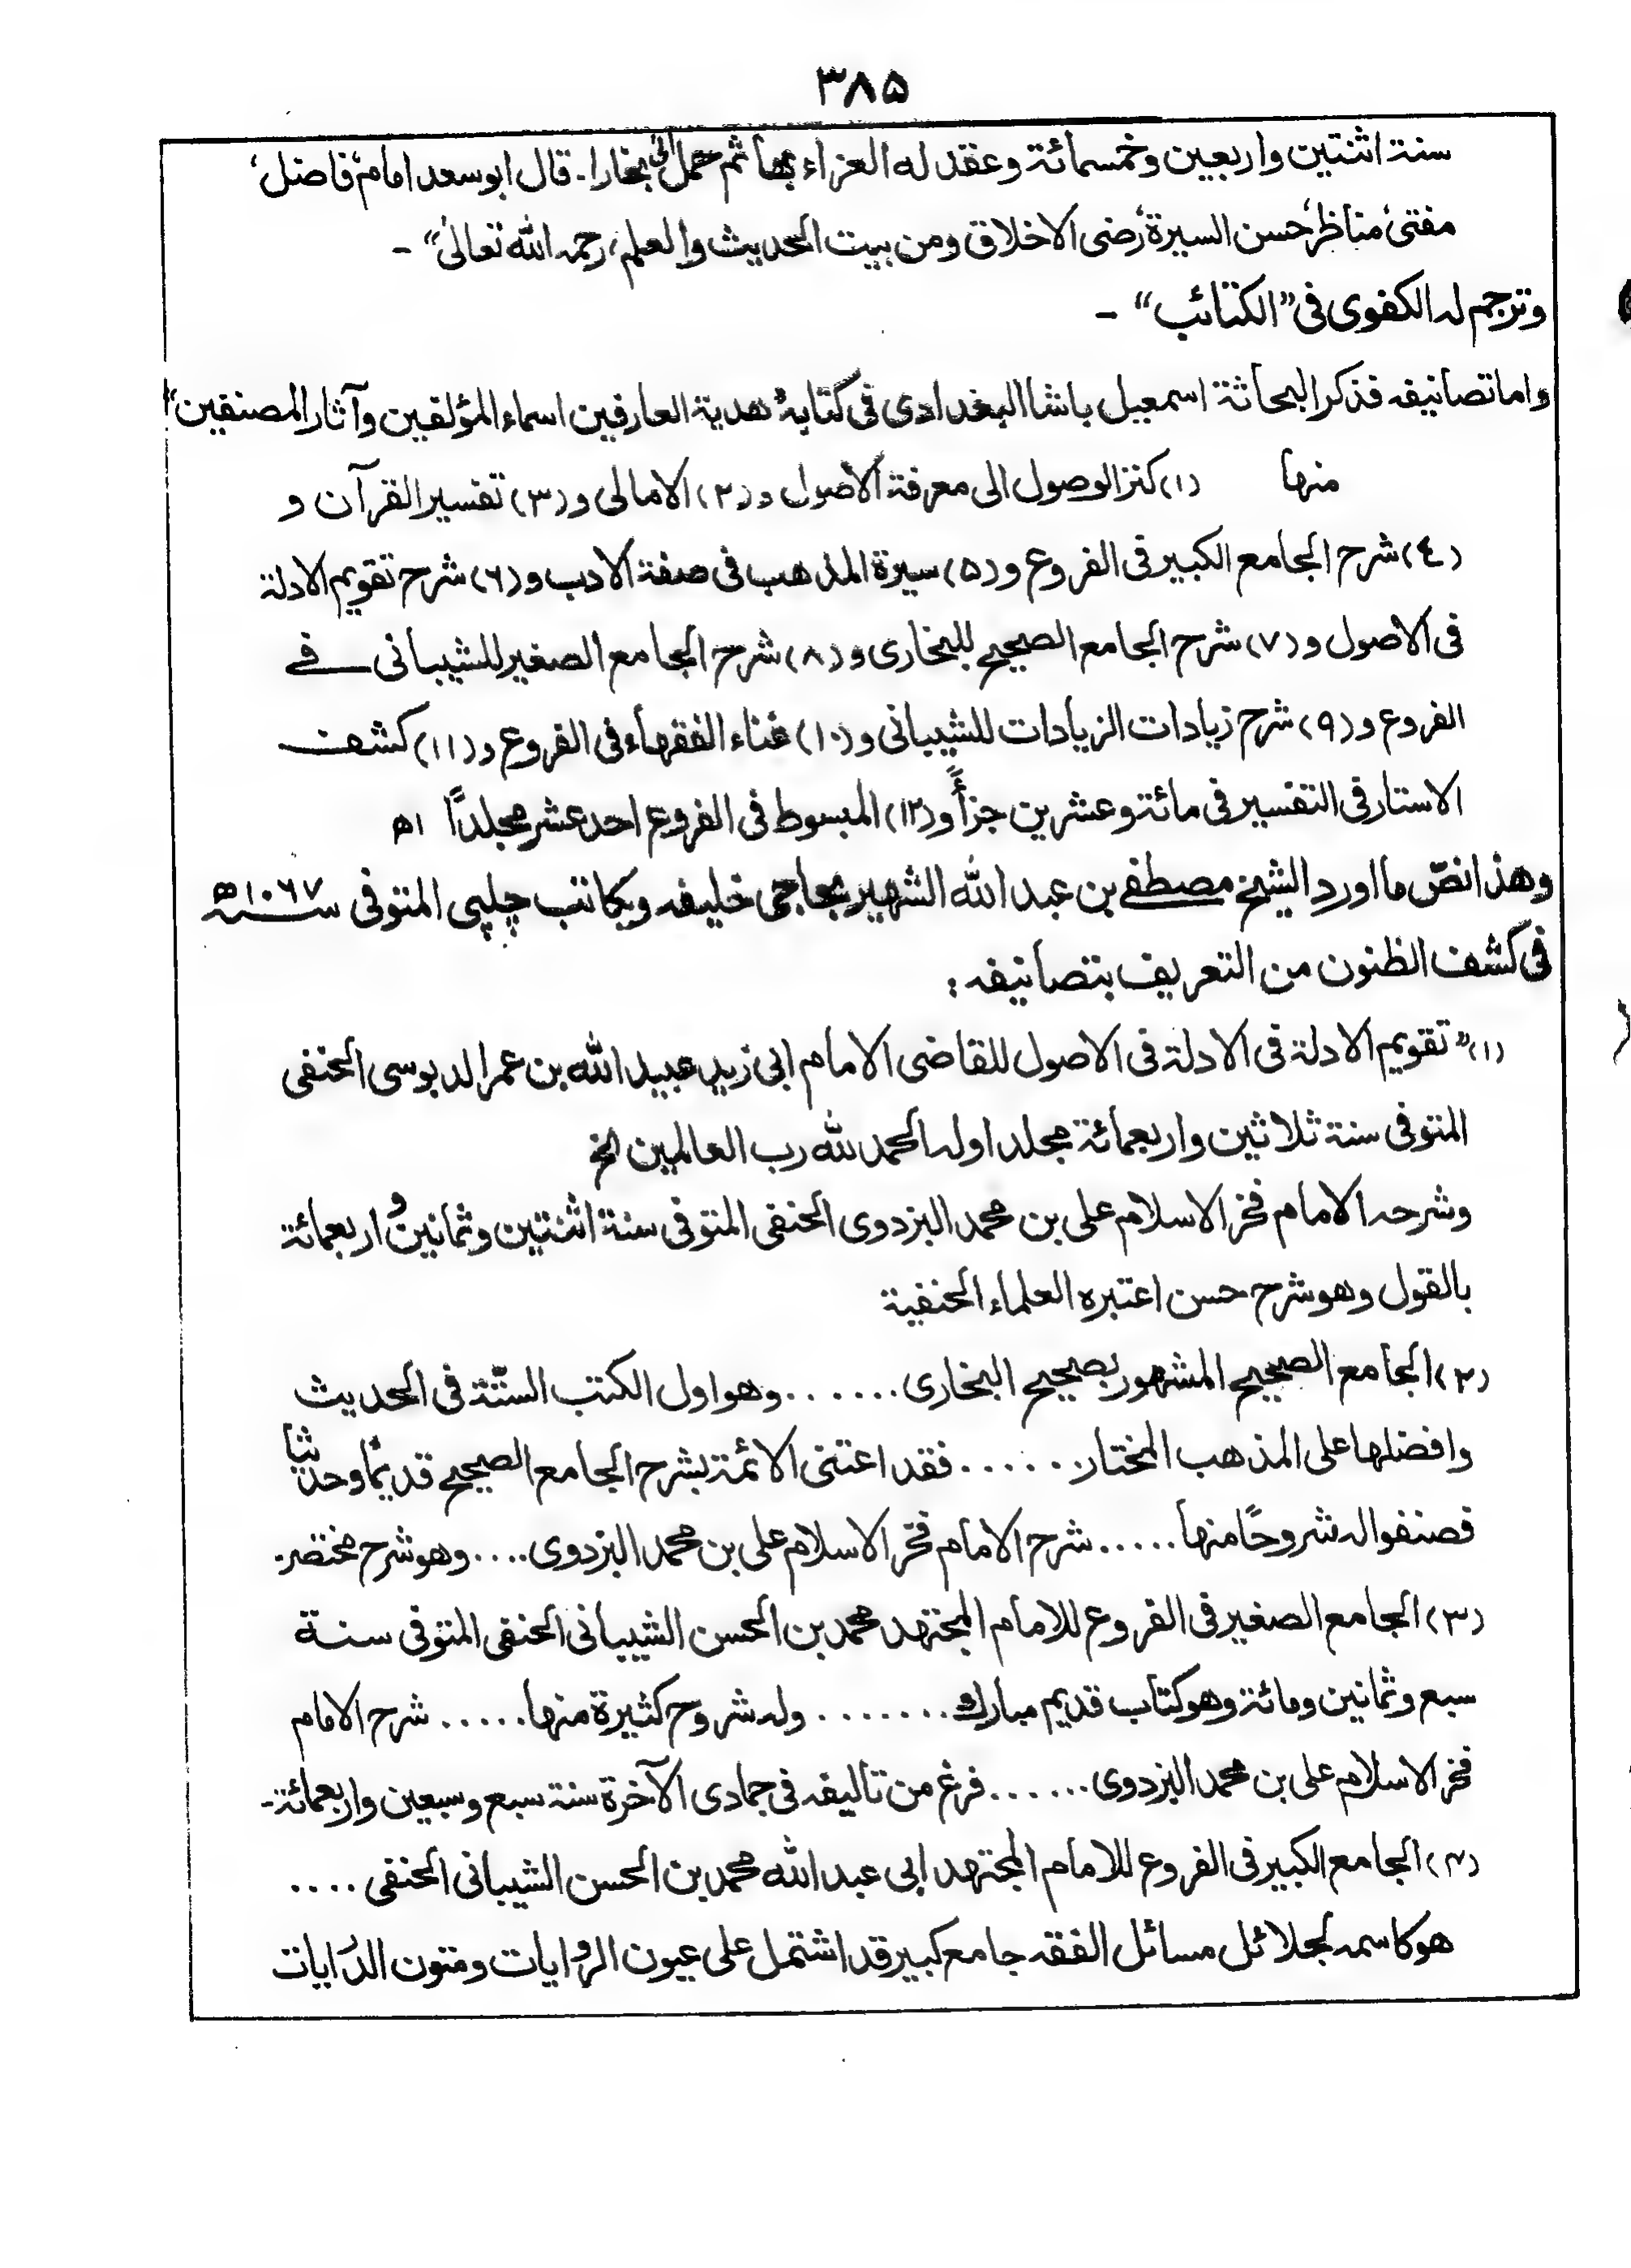 ٣٨٥
سنة اثنتين واربعين وخمسمائة وعقد له العزاء بها ثم حمل الى بخارا۔ قال ابوسعد امام، فاضل،
مفتی، مناظر، حسن السيرة، رضی الاخلاق ومن بيت الحديث والعلم، رحمه الله تعالیٰ“ ۔
وترجم له الكفوی فی ”الكتائب“ ۔
واما تصانيفه فذكر البحاثة اسمعيل باشا البغدادی فی كتابه ”هدية العارفين اسماء المؤلفين وآثار المصنفين“
منها (١) كنز الوصول الى معرفة الاصول و (٢) الامالی و (٣) تفسير القرآن و
(٤) شرح الجامع الكبير فی الفروع و (٥) سيرة المذهب فی صفة الادب و (٦) شرح تقويم الادلة
فی الاصول و (٧) شرح الجامع الصحيح للبخاری و (٨) شرح الجامع الصغير للشيبانی فے
الفروع و (٩) شرح زيادات الزيادات للشيبانی و (١٠) غناء الفقهاء فی الفروع و (١١) كشف
الاستار فی التفسير فی مائة وعشرين جزأً و (١٢) المبسوط فی الفروع احد عشر مجلداً اھ
وهذا نصّ ما اورد الشيخ مصطفے بن عبد الله الشهير بحاجی خليفه وبكاتب چلپی المتوفی سنة ١٠٦٧ھ
فی كشف الظنون من التعريف بتصانيفه :
(١) ”تقويم الادلة فی الادلة فی الاصول للقاضی الامام ابی زيد عبيد الله بن عمر الدبوسی الحنفی
المتوفی سنة ثلاثين واربعمائة مجلد اوله الحمد لله رب العالمين الخ
وشرحه الامام فخر الاسلام علی بن محمد البزدوی الحنفی المتوفی سنة اثنتين وثمانين و اربعمائة
بالقول وهو شرح حسن اعتبره العلماء الحنفية
(٢) الجامع الصحيح المشهور بصحيح البخاری ...... وهو اول الكتب الستّة فی الحديث
وافضلها علی المذهب المختار ...... فقد اعتنی الائمة بشرح الجامع الصحيح قديمًا وحديثا
فصنفوا له شروحًا منها ..... شرح الامام فخر الاسلام علی بن محمد البزدوی .... وهو شرح مختصر۔
(٣) الجامع الصغير فی الفروع للامام المجتهد محمد بن الحسن الشيبانی الحنفی المتوفی سنة
سبع وثمانين ومائة وهو كتاب قديم مبارك ....... وله شروح كثيرة منها ..... شرح الامام
فخر الاسلام علی بن محمد البزدوی ...... فرغ من تاليفه فی جمادی الآخرة سنة سبع وسبعين واربعمائة۔
(۴) الجامع الكبير فی الفروع للامام المجتهد ابی عبد الله محمد بن الحسن الشيبانی الحنفی ....
هو كاسمه لجلائل مسائل الفقه جامع كبير قد اشتمل علی عيون الروايات ومتون الدرايات